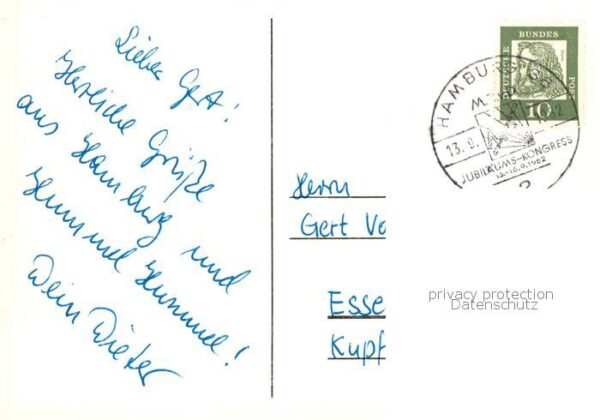 Lieber Gert!
Herzliche Grüße
aus Hamburg und
Hummel Hummel!
Dein Dieter
DEUTSCHE BUNDES POST
10
HAMBURG
13. 9.
JUBILÄUMS-KONGRESS
13.-16.9.1962
Herrn
Gert Vo
Esse
Kupf
privacy protection
Datenschutz